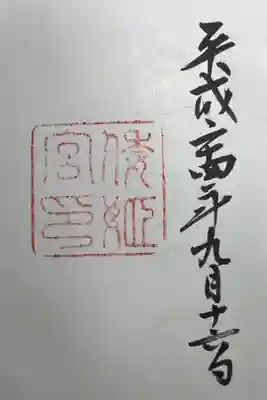 平成二十四年九月十六日
倭姫
宮印